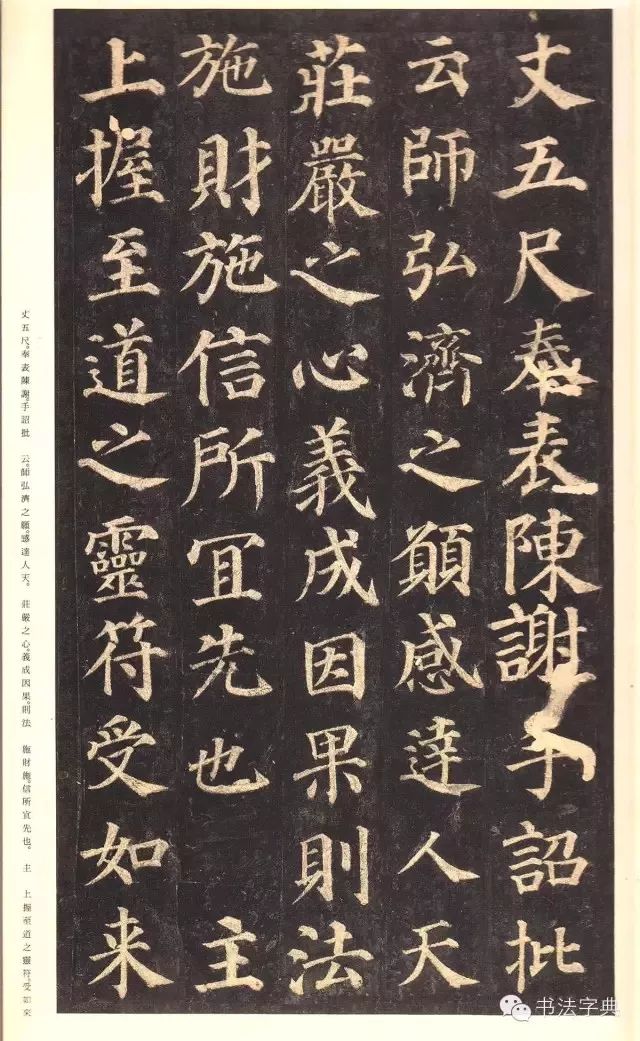 丈五尺奉表陳謝手詔批
云師弘濟之願感達人天
莊嚴之心義成因果則法
施財施信所宜先也 主
上握至道之靈符受如来
丈五尺。奉表陳謝。手詔批 云。師弘濟之願。感達人天。 莊嚴之心。義成因果。則法 施財施。信所宜先也。 主 上握至道之靈符。受如來
书法字典